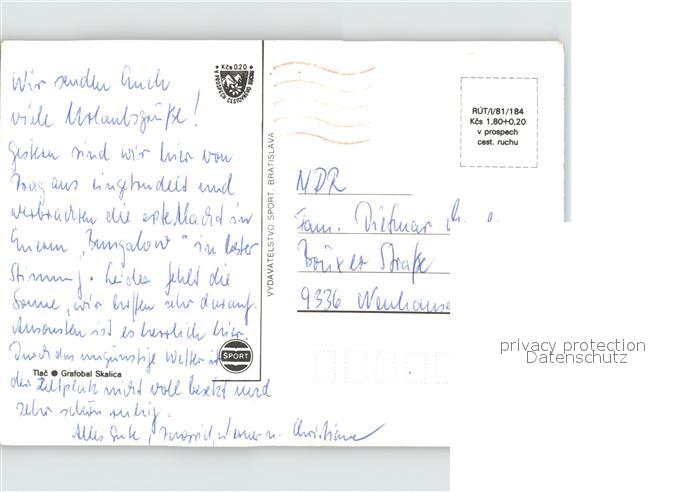 Wir senden Euch
viele Urlaubsgrüße!
Gestern sind wir hier von
Prag aus eingetrudelt und
verbrachten die erste Nacht in
Eurem „Bungalow" in bester
Stimmung. Leider fehlt die
Sonne, wir hoffen sehr darauf.
Ansonsten ist es herrlich hier.
Durch das ungünstige Wetter ist
der Zeltplatz nicht voll besetzt und
sehr schön ruhig.
Alles Gute, Ingrid, Werner u. Christiane
Tlač ● Grafobal Skalica
Kčs 0.20
V PROSPECH CESTOVNÉHO RUCHU
VYDAVATEĽSTVO ŠPORT, BRATISLAVA
ŠPORT
RÚT/I/81/184
Kčs 1,80+0,20
v prospech
cest. ruchu
DDR
Fam. Dietmar
Straße
9336
privacy protection
Datenschutz